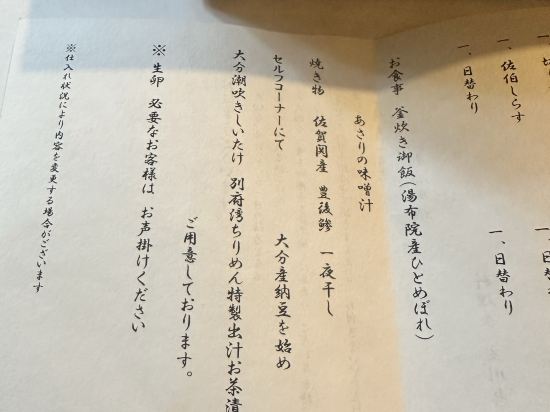 一、佐伯しらす
一、日替わり
一、日替わり
お食事 釜炊き御飯(湯布院産ひとめぼれ)
あさりの味噌汁
焼き物 佐賀関産 豊後鯵 一夜干し
セルフコーナーにて 大分産納豆を始め
大分潮吹きしいたけ 別府湾ちりめん特製出汁お茶漬
ご用意しております。
※ 生卵 必要なお客様は お声掛けください
※仕入れ状況により内容を変更する場合がございます